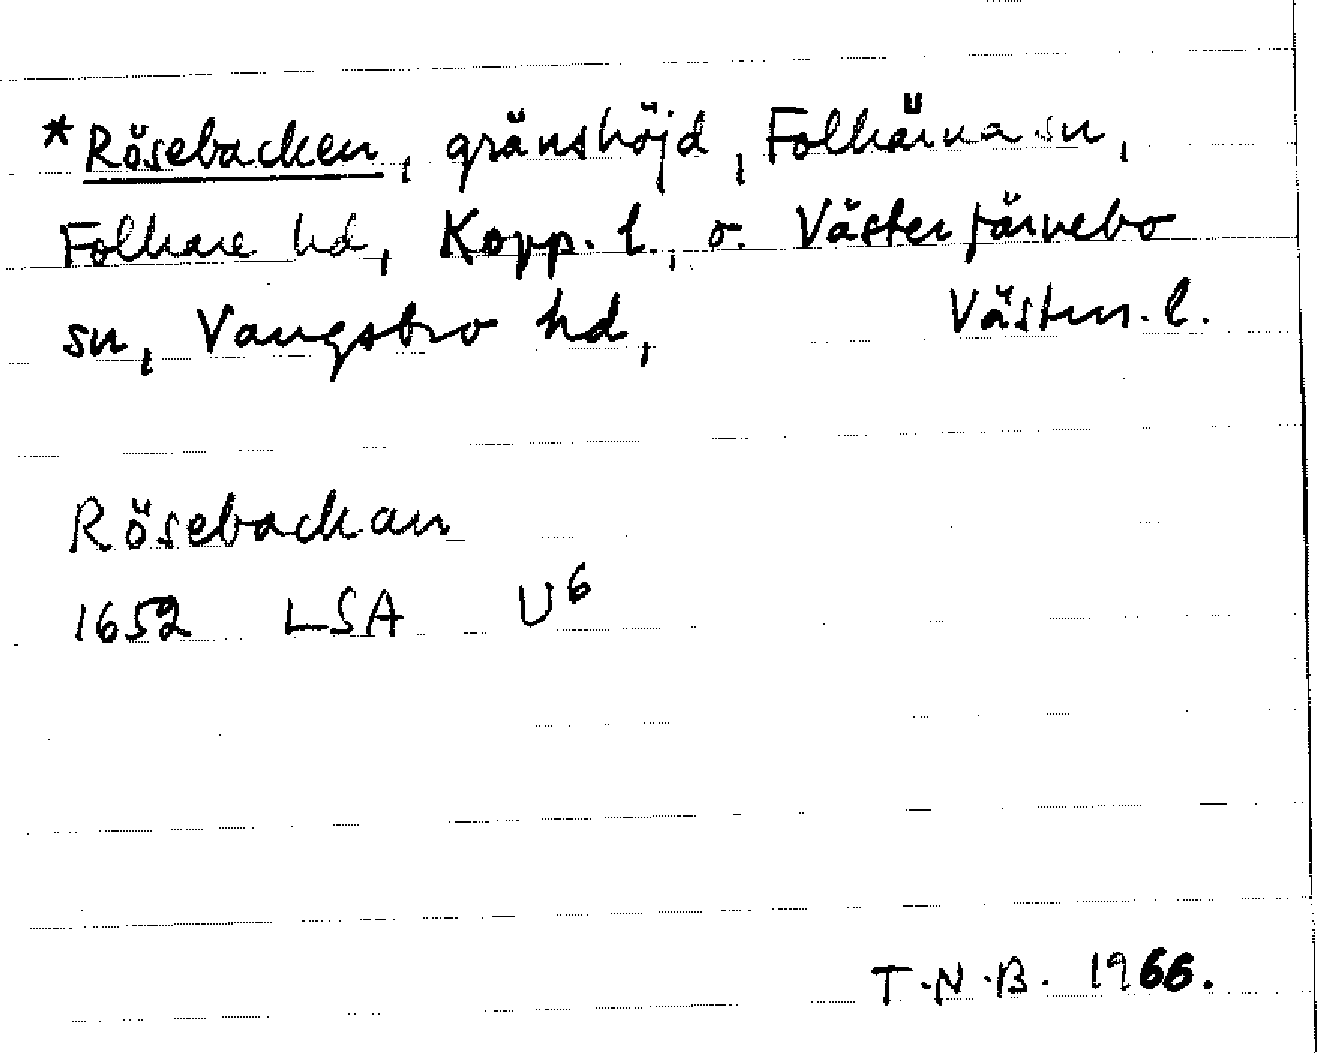 *Rösebacken, gränshöjd, Folkärna sn,
Folkare hd, Kopp. l., o. Västerfärnebo
sn, Vangsbro hd, Västm. l.
Rösebackan
1652 LSA U6
T.N.B. 1966.